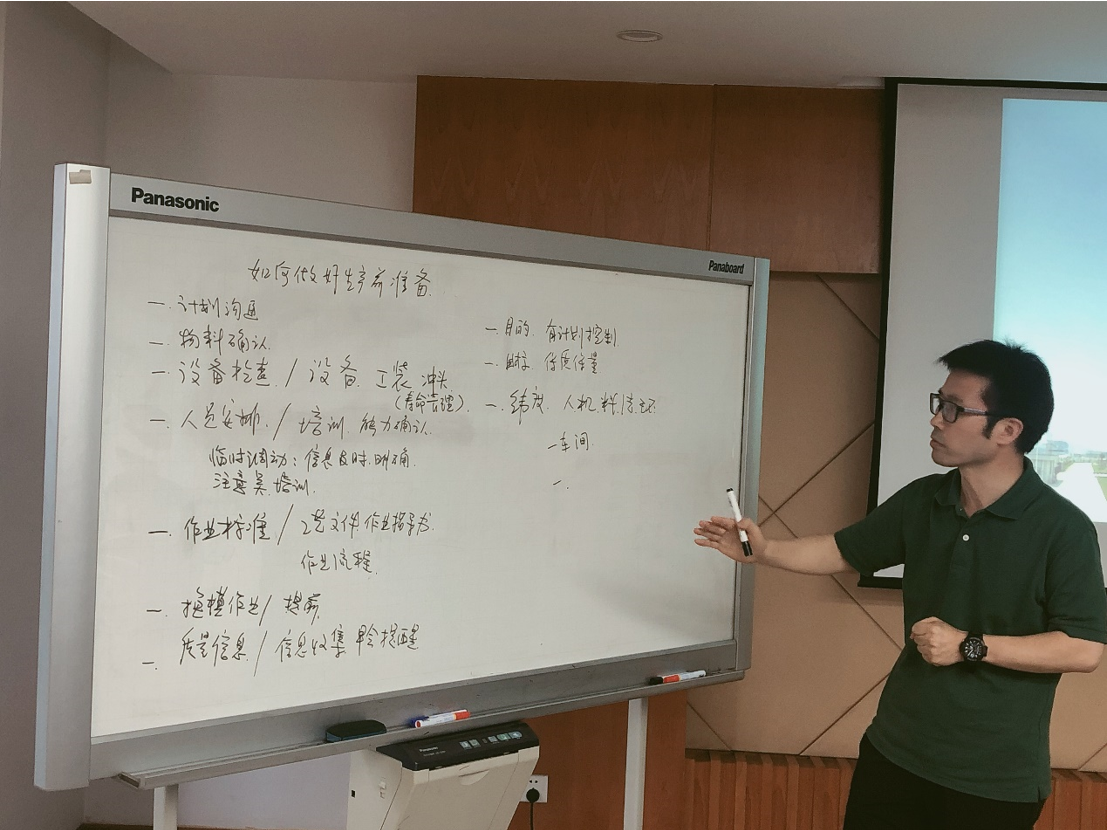 Panasonic
Panaboard
如何做好生产前准备
一. 计划沟通
一. 物料确认
一. 设备检查 / 设备 工装 冲头
(寿命管理)
一. 人员安排 / 培训. 能力确认
临时调动: 信息及时明确
注意 培训.
一. 作业标准 / 工艺文件 作业指导书
作业流程
一. 换模作业 / 提前
一. 质量信息 / 信息收集 早会提醒
一. 目的. 有计划控制
一. 保质保量
一. 纬度. 人机料法环
一车间
一.